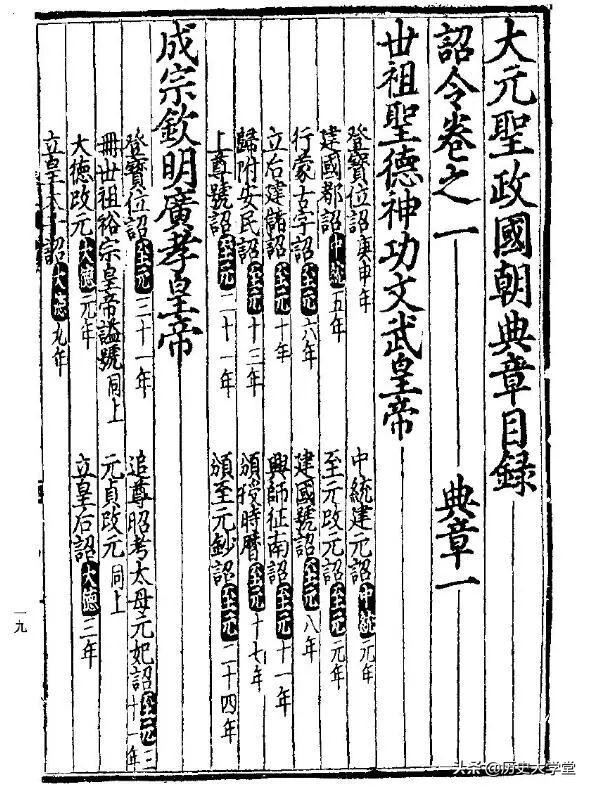 大元聖政國朝典章目録
詔令卷之一 典章一
世祖聖德神功文武皇帝
登寶位詔庚申年 中統建元詔中統元年
建國都詔中統五年 至元改元詔至元元年
行蒙古字詔至元六年 建國號詔至元八年
立后建儲詔至元十年 興師征南詔至元十一年
歸附安民詔至元十三年 頒授時曆至元十七年
上尊號詔至元二十一年 頒至元鈔詔至元二十四年
成宗欽明廣孝皇帝
登寶位詔至元三十一年 追尊昭考太母元妃詔至元三十一年
冊世祖裕宗皇帝謚號同上 元貞改元同上
大德改元大德元年 立皇后詔大德三年
立皇太子詔大德九年
一九
头条@历史大学堂